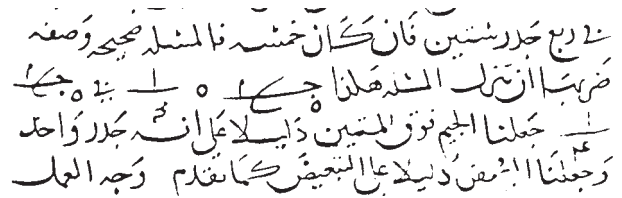 في ربع جذر ستين فان كان خمسه فالمسئله صحيحه وصفه
ضربها ان تنزل المسئله هكذا
جعلنا الجيم فوق الستين دليلا على انه جذر واحد
وجعلنا دليلا على التبعيض كما تقدم وجه العمل